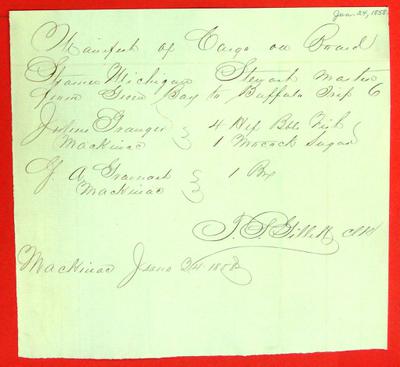 June 24, 1858
Manifest of Cargo on Board
Steamer Michigan Stewart Master
from Green Bay to Buffalo Trip 6
Julius Granger 4 Hlf Bbls Fish
Mackinac 1 Mocock Sugar
G. A 1 Box
Mackinac
Clk
Mackinac June 24 1858